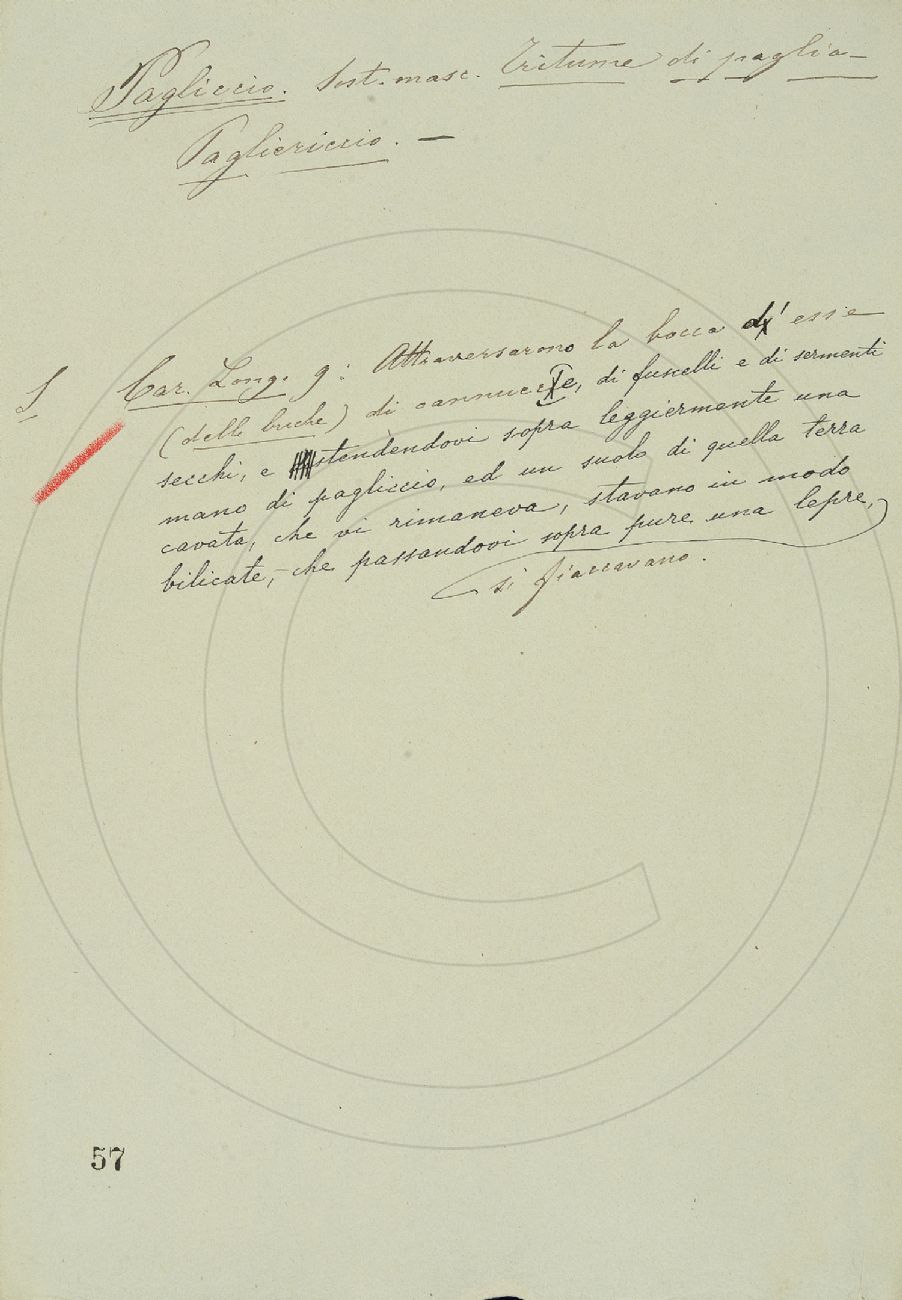 Pagliccio. Sost. masc. Tritume di paglia –
Pagliericcio. –
S Car. Long. 9: Attraversarono la bocca d' esse
(delle buche) di cannucce, di fuscelli e di sermenti
secchi, e stendendovi sopra leggiermente una
mano di pagliccio, ed un suolo di quella terra
cavata, che vi rimaneva, stavano in modo
bilicate, che passandovi sopra pure una lepre,
si fiaccavano.
57